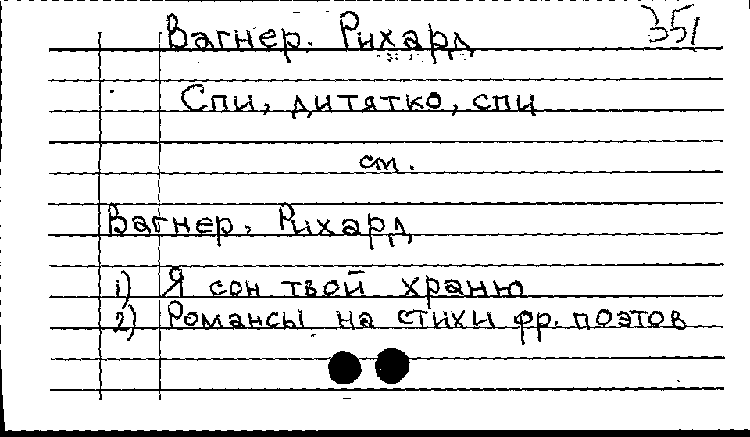 351
Вагнер. Рихард
Спи, дитятко, спи
см.
Вагнер, Рихард
1) Я сон твой храню
2) Романсы на стихи фр. поэтов